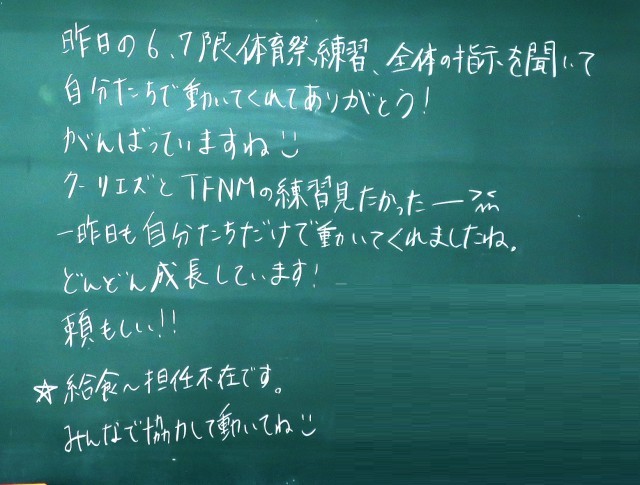 昨日の6、7限体育祭練習、全体の指示を聞いて
自分たちで動いてくれてありがとう!
がんばっていますね
クーリエズとTFNMの練習見たかったー
一昨日も自分たちだけで動いてくれましたね。
どんどん成長しています!
頼もしい!!
☆給食〜担任不在です。
みんなで協力して動いてね